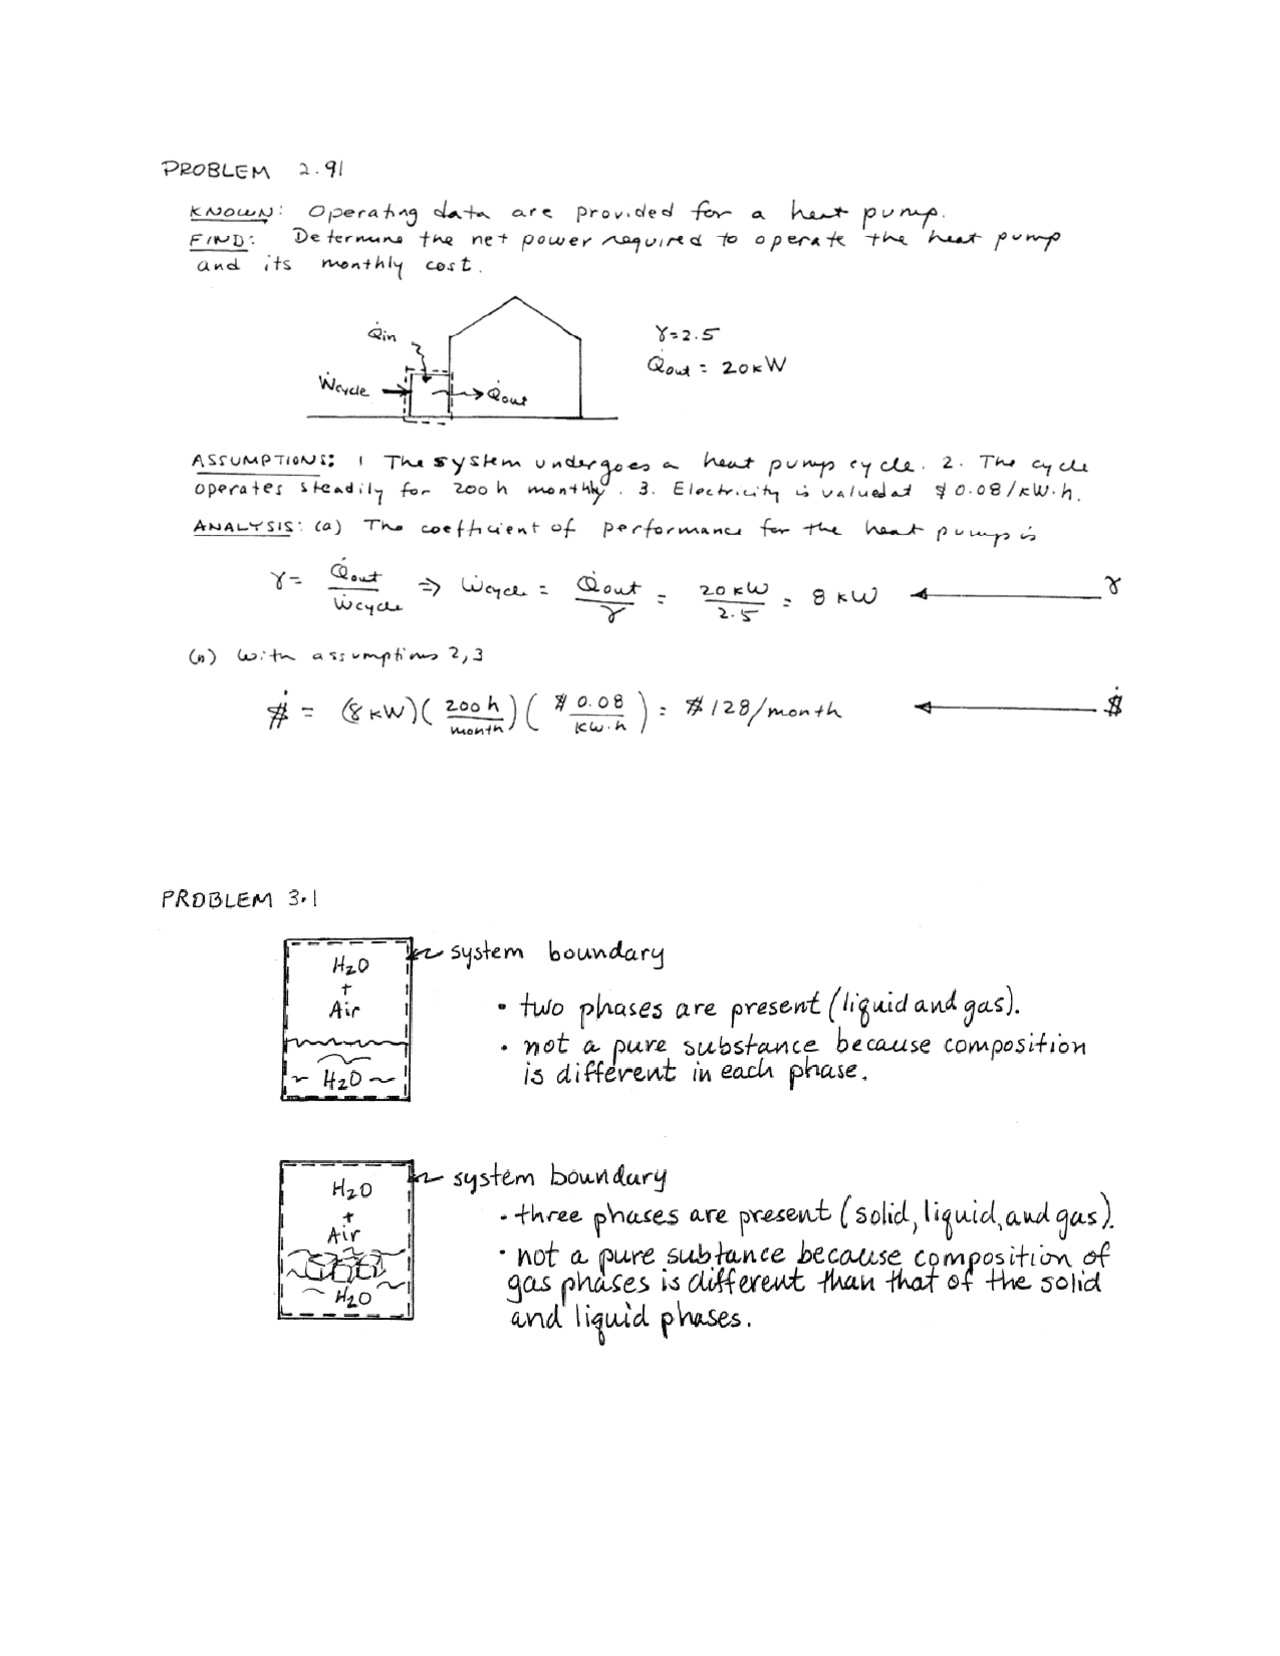 PROBLEM 2.91
KNOWN: Operating data are provided for a heat pump.
FIND: Determine the net power required to operate the heat pump
and its monthly cost.
Q̇in
γ=2.5
Q̇out = 20kW
Ẇcycle
Q̇out
ASSUMPTIONS: 1 The system undergoes a heat pump cycle. 2. The cycle
operates steadily for 200h monthly. 3. Electricity is valued at $0.08/kW·h.
ANALYSIS: (a) The coefficient of performance for the heat pump is
γ = Q̇out/Ẇcycle ⇒ Ẇcycle = Q̇out/γ = 20kW/2.5 = 8 kW ← γ
With assumptions 2,3
$̇ = (8kW)(200h/month)($0.08/kW·h) = $128/month ← $̇
PROBLEM 3.1
system boundary
H₂O
+
Air
• two phases are present (liquid and gas).
• not a pure substance because composition
is different in each phase.
~ H₂O ~
system boundary
H₂O
+
Air
• three phases are present (solid, liquid, and gas).
• not a pure subtance because composition of
gas phases is different than that of the solid
and liquid phases.
H₂O